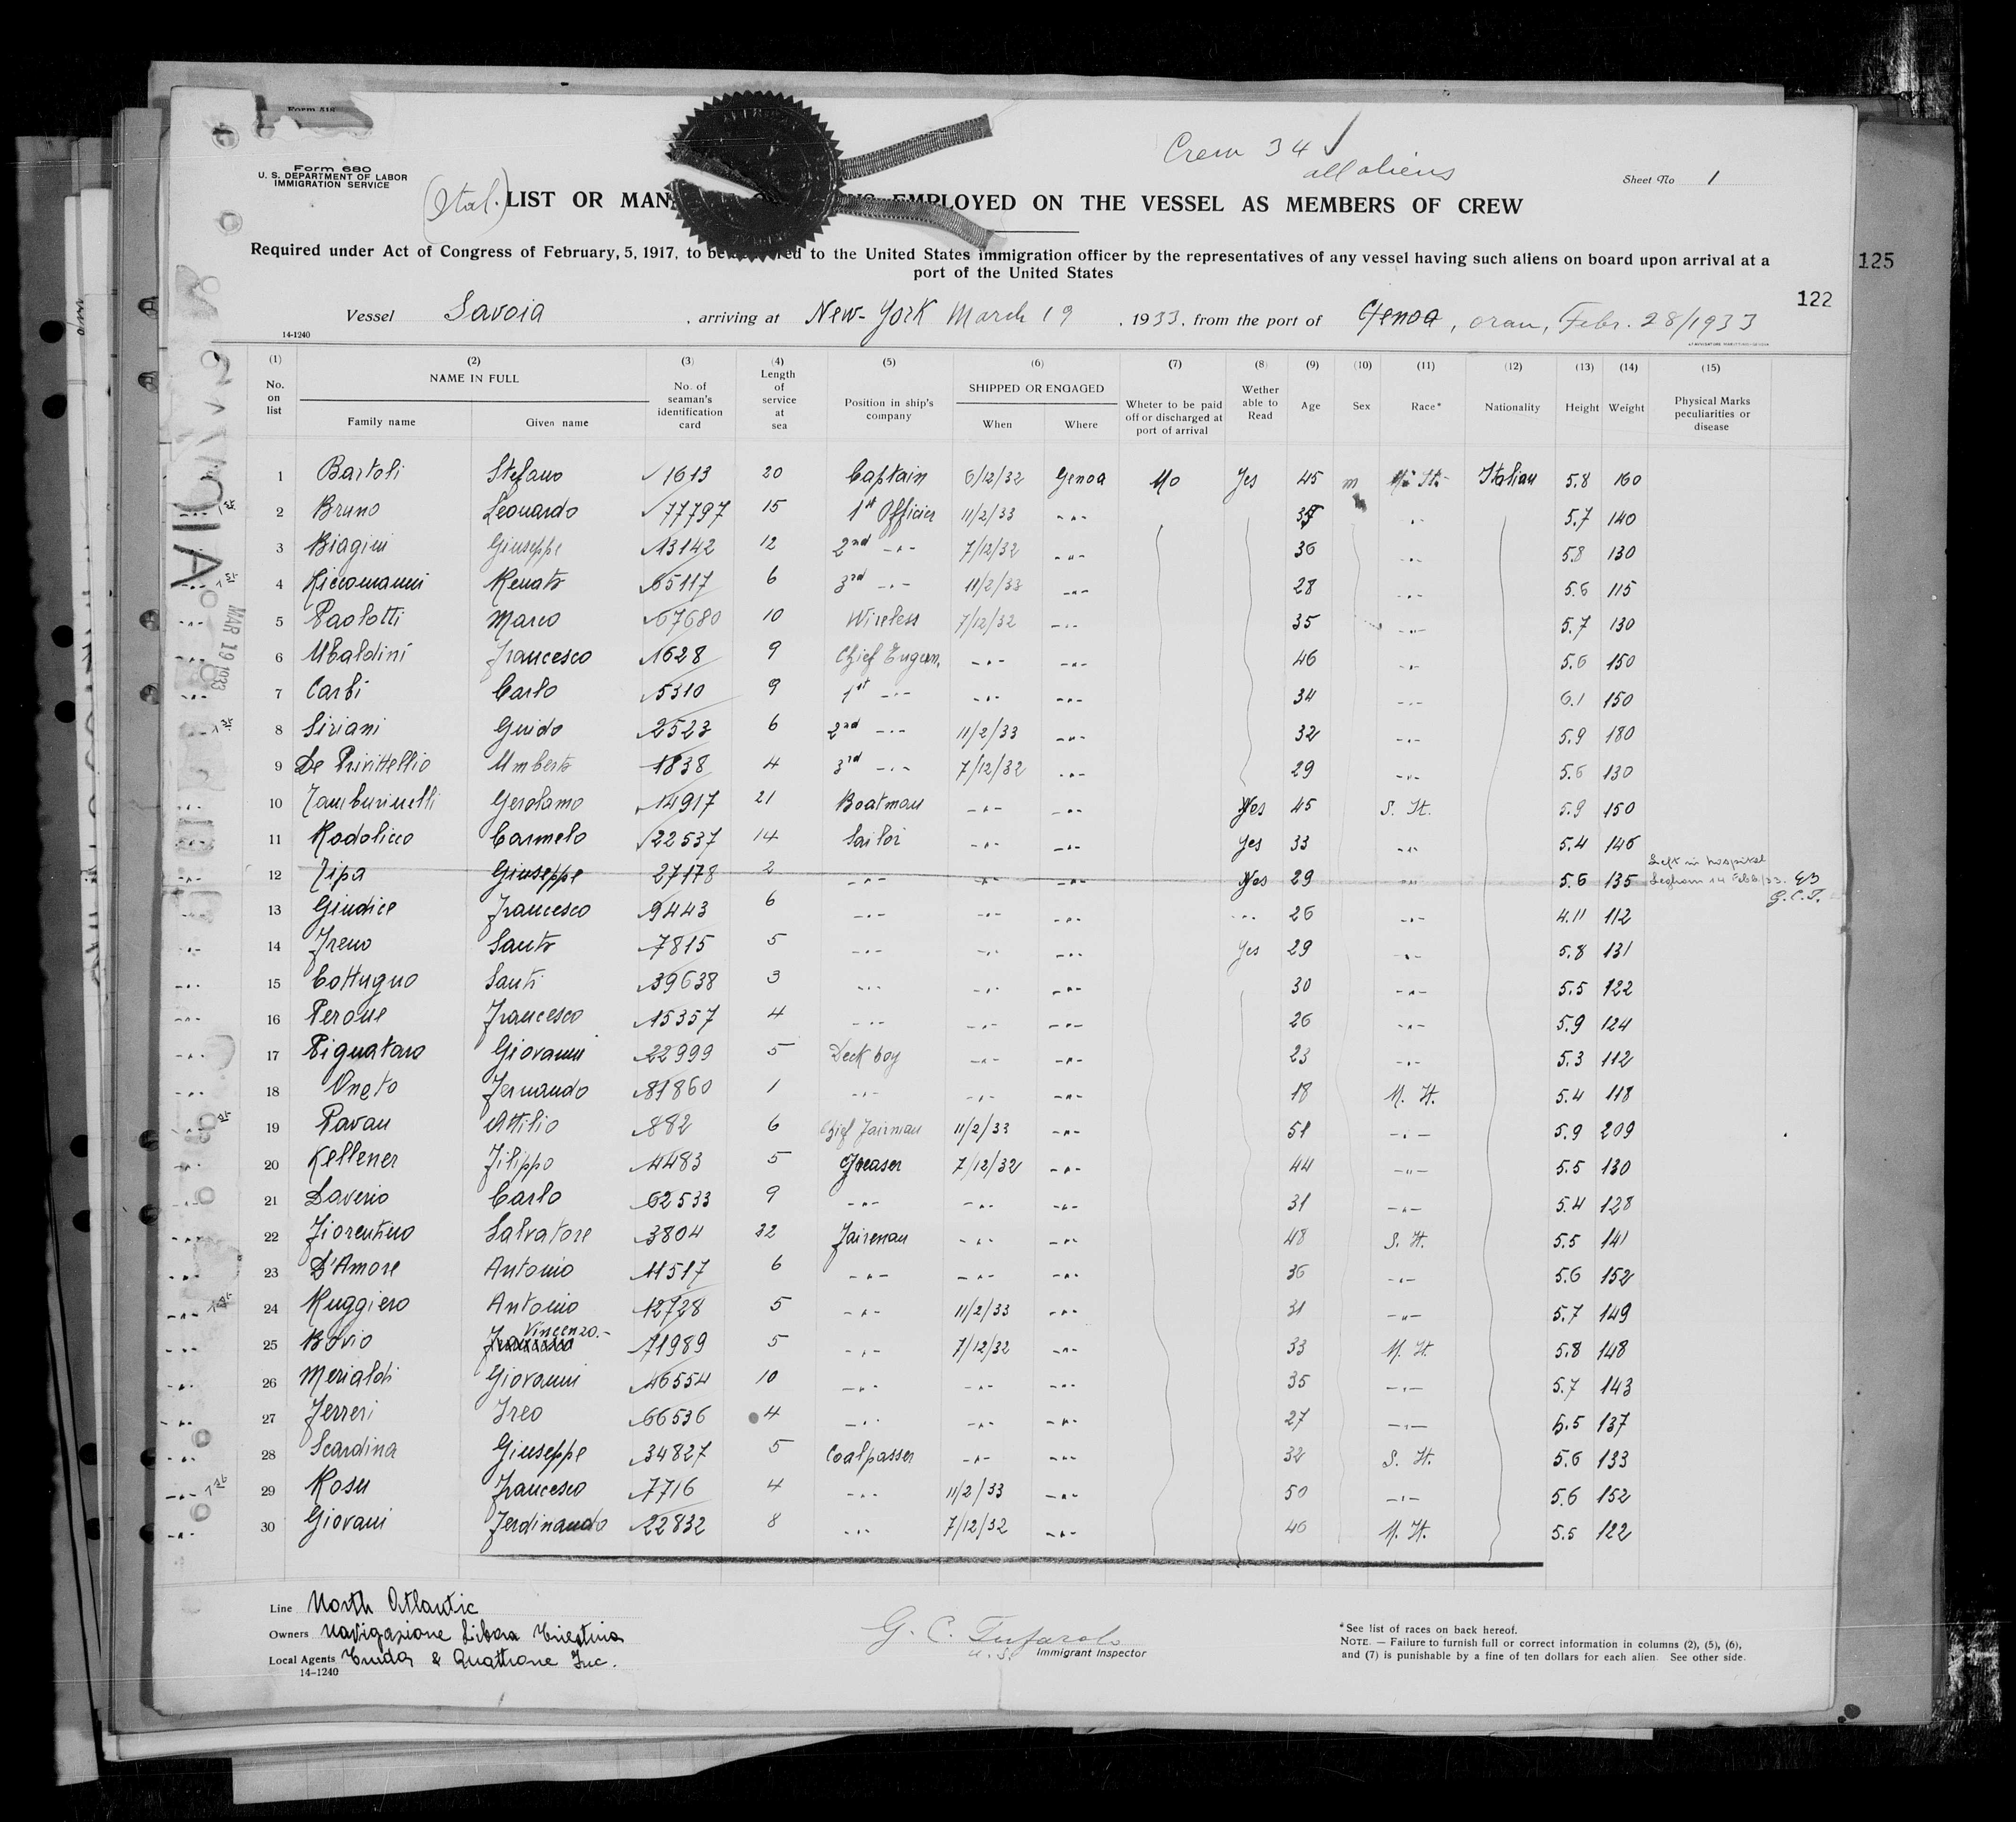 Form 680
U. S. DEPARTMENT OF LABOR
IMMIGRATION SERVICE
Crew 34 √
all aliens
Sheet No 1
(Ital.) LIST OR MAN EMPLOYED ON THE VESSEL AS MEMBERS OF CREW
Required under Act of Congress of February, 5, 1917, to be red to the United States immigration officer by the representatives of any vessel having such aliens on board upon arrival at a
port of the United States
125
122
Vessel Savoia , arriving at New-York March 19 , 1933, from the port of Genoa, oran, Febr. 28/1933
14-1240
(1) (2) (3) (4) (5) (6) (7) (8) (9) (10) (11) (12) (13) (14) (15)
No. on list NAME IN FULL Family name Given name No. of seaman's identification card Length of service at sea Position in ship's company SHIPPED OR ENGAGED When Where Wheter to be paid off or discharged at port of arrival Wether able to Read Age Sex Race* Nationality Height Weight Physical Marks peculiarities or disease
1 Bartoli Stefano √ 1613 20 Captain 6/12/32 Genoa No Yes 45 m N. It. Italian 5.8 160
2 Bruno Leonardo √ 77797 15 1st Officier 11/2/33 -"- 5.7 140
3 Biagini Giuseppe √ 13142 12 2nd -"- 7/12/32 -"- 36 -"- 5.8 130
4 Riccomanni Renato √ 65117 6 3rd -"- 11/2/33 -"- 28 -"- 5.6 115
5 Paolotti Marco √ 67680 10 Wireless 7/12/32 -"- 35 -"- 5.7 130
6 Ubaldini Francesco √ 1628 9 Chief Engeen. -"- -"- 46 -"- 5.6 150
7 Carbi Carlo √ 5310 9 1st -"- -"- -"- 34 -"- 6.1 150
8 Siriani Guido √ 2523 6 2nd -"- 11/2/33 -"- 32 -"- 5.9 180
9 De Privitellio Umberto 1838 4 3rd -"- 7/12/32 -"- 29 -"- 5.6 130
10 Tamburinelli Gerolamo √ 14917 21 Boatman -"- -"- Yes 45 S. It. 5.9 150
11 Rodolicco Carmelo √ 22537 14 Sailor -"- -"- Yes 33 -"- 5.4 146
12 Zipa Giuseppe 27178 2 -"- -"- -"- Yes 29 -"- 5.6 135 Left in hospital Leghorn 14 Feb/33.
G.C.T.
13 Giudice Francesco √ 9443 6 -"- -"- -"- -"- 26 -"- 4.11 112
14 Freno Santo √ 7815 5 -"- -"- -"- Yes 29 -"- 5.8 131
15 Cottugno Santi √ 39638 3 -"- -"- -"- 30 -"- 5.5 122
16 Perone Francesco √ 15357 4 -"- -"- -"- 26 -"- 5.9 124
17 Pignataro Giovanni √ 22999 5 Deck boy -"- -"- 23 -"- 5.3 112
18 Oneto Fernando √ 81860 1 -"- -"- -"- 18 N. It. 5.4 118
19 Pavan Attilio √ 882 6 Chief Fairman 11/2/33 -"- 51 -"- 5.9 209
20 Kellener Filippo √ 4483 5 Greaser 7/12/32 -"- 44 -"- 5.5 130
21 Daverio Carlo √ 62533 9 -"- -"- -"- 31 -"- 5.4 128
22 Fiorentino Salvatore √ 3804 32 Fairenan -"- -"- 48 S. It. 5.5 141
23 D'Amore Antonio √ 11517 6 -"- -"- -"- 36 -"- 5.6 152
24 Ruggiero Antonio √ 12728 5 -"- 11/2/33 -"- 31 -"- 5.7 149
25 Bovio Vincenzo.- √ 71989 5 -"- 7/12/32 -"- 33 N. It. 5.8 148
26 Merialdi Giovanni √ 46554 10 -"- -"- -"- 35 -"- 5.7 143
27 Ferreri Ireo √ 66536 4 -"- -"- -"- 27 -"- 5.5 137
28 Scardina Giuseppe √ 34827 5 Coalpasser -"- -"- 32 S. It. 5.6 133
29 Rosu Francesco √ 7716 4 -"- 11/2/33 -"- 50 -"- 5.6 152
30 Giovani Ferdinando √ 22832 8 -"- 7/12/32 -"- 46 N. It. 5.5 122
MAR 19 1933
Line North Atlantic
Owners Navigazione Libera Triestina
Local Agents & Quattrone Inc.
14-1240
G. C. Tufarolo
U. S. Immigrant Inspector
*See list of races on back hereof.
NOTE. — Failure to furnish full or correct information in columns (2), (5), (6),
and (7) is punishable by a fine of ten dollars for each alien. See other side.